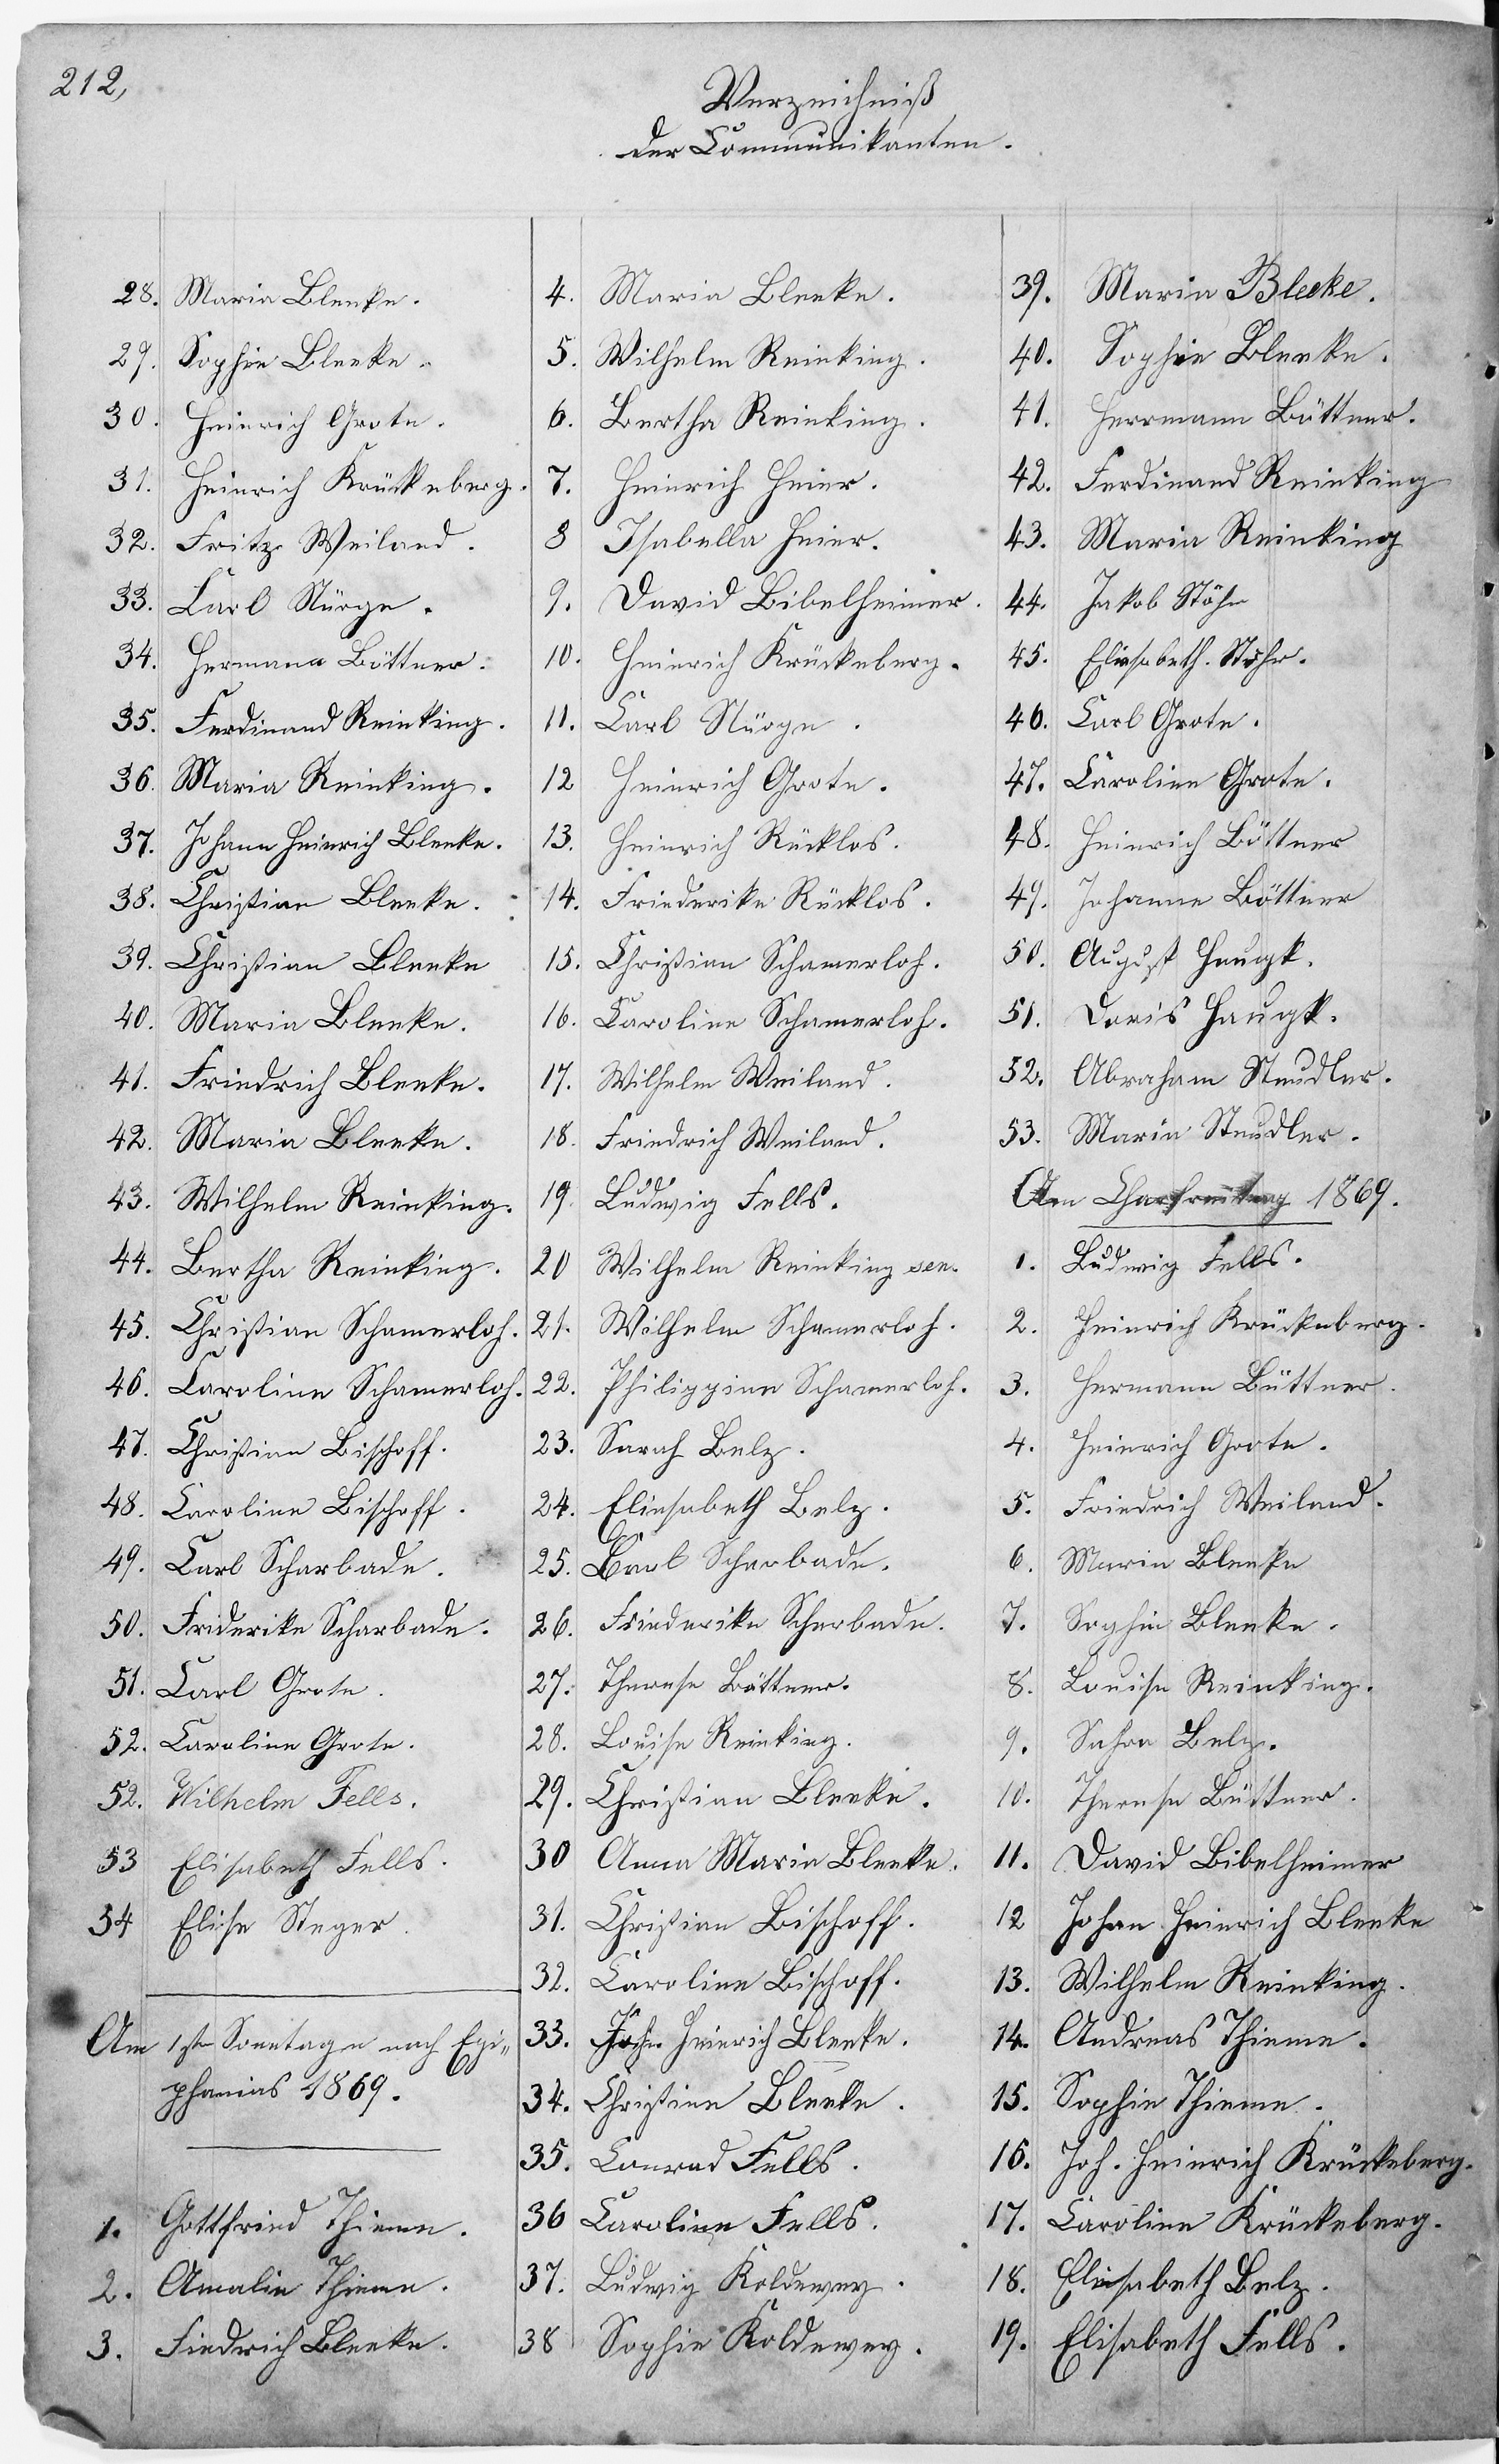 212,
Verzeichniß
der Communikanten.
28. Maria Bleeke.
29. Sophie Bleeke.
30. Heinrich Grote.
31. Heinrich Krückeberg.
32. Fritz Weiland.
33. Carl Stürge.
34. Hermann Böttner.
35. Ferdinand Reinking.
36. Maria Reinking.
37. Johann Heinrich Bleeke.
38. Christine Bleeke.
39. Christian Bleeke
40. Maria Bleeke.
41. Friedrich Bleeke.
42. Maria Bleeke.
43. Wilhelm Reinking.
44. Bertha Reinking.
45. Christian Schamerloh.
46. Caroline Schamerloh.
47. Christian Bischoff.
48. Caroline Bischoff.
49. Carl Scharbade.
50. Friderike Scharbade.
51. Carl Grote.
52. Caroline Grote.
52. Wilhelm Fells.
53 Elisabeth Fells.
54 Elise Steger.
Am 1ste Sonntage nach Epi-
phanias 1869.
1. Gottfried Thieme.
2. Amalie Thieme.
3. Fiedrich Bleeke.
4. Maria Bleeke.
5. Wilhelm Reinking.
6. Bertha Reinking.
7. Heinrich Heier.
8 Isabella Heier.
9. David Bibelheimer.
10. Heinrich Krückeberg.
11. Carl Stürge.
12 Heinrich Grote.
13. Heinrich Rücklos.
14. Friederike Rücklos.
15. Christian Schamerloh.
16. Caroline Schamerloh.
17. Wilhelm Weiland.
18. Friedrich Weiland.
19. Ludwig Fells.
20 Wilhelm Reinking sen.
21. Wilhelm Schamerloh.
22. Philippine Schamerloh.
23. Sarah Belz.
24. Eliesabeth Belz.
25. Carl Scharbade.
26. Friederike Scharbade.
27. Therese Böttner.
28. Louise Reinking.
29. Christian Bleeke.
30 Anna Maria Bleeke.
31. Christian Bischoff.
32. Caroline Bischoff.
33. Joh. Heinrich Bleeke.
34. Christine Bleeke.
35. Conrad Fells.
36 Caroline Fells.
37. Ludwig Koldewey.
38 Sophie Koldewey.
39. Maria Bleeke.
40. Sophie Bleeke.
41. Herrmann Böttner.
42. Ferdinand Reinking
43. Maria Reinking
44. Jakob Stöhr
45. Eliesabeth Stöhr.
46. Carl Grote.
47. Caroline Grote.
48. Heinrich Böttner
49. Johanne Böttner
50. August Haugk.
51. Doris Haugk.
52. Abraham Steudler.
53. Maria Steudler.
Am Charfreitag 1869.
1. Ludwig Fells.
2. Heinrich Krückeberg.
3. Hermann Büttner.
4. Heinrich Grote.
5. Friedrich Weiland.
6. Maria Bleeke
7. Sophie Bleeke.
8. Louise Reinking.
9. Sahra Belz.
10. Therese Büttner.
11. David Bibelheimer
12 Johan Heinrich Bleeke
13. Wilhelm Reinking.
14. Andreas Thieme.
15. Sophie Thieme.
16. Joh. Heinrich Krückeberg.
17. Caroline Krückeberg.
18. Eliesabeth Belz.
19. Elisabeth Fells.